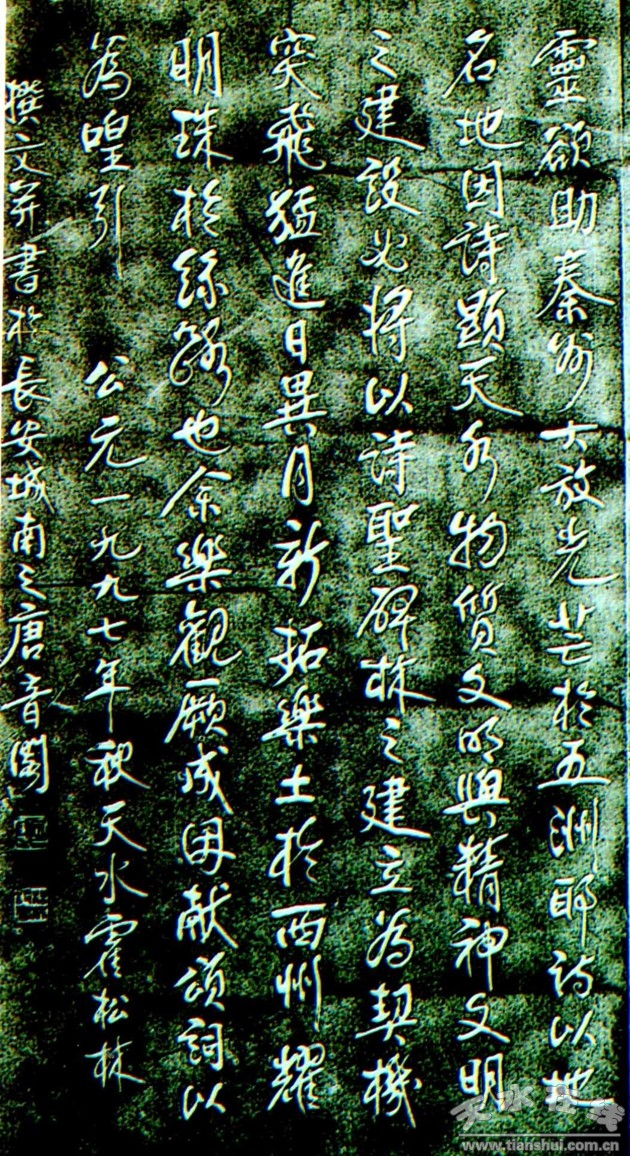 靈欲助秦州大放光芒於五洲耶詩以地
名地因詩顯天水物質文明與精神文明
之建設必將以詩聖碑林之建立為契機
突飛猛進日異月新拓樂土於西州耀
明珠於絲路也余樂觀厥成因献頌詞以
為喤引
公元一九九七年秋天水霍松林
撰文并書於長安城南之唐音閣
天水在线
www.tianshui.com.cn